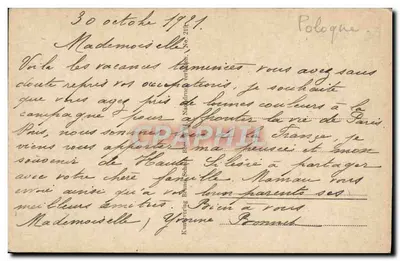 30 octobre 1921.
Pologne
Mademoiselle
Voilà les vacances terminées, vous avez sans
doute repris vos occupations. je souhaite
que vous ayez pris de bonnes couleurs à la
campagne pour affronter la vie de Paris
Nous, nous sommes France, je
viens vous apporter ma pensée et mon
souvenir de Haute Silésie à partager
avec votre chère famille. Maman vous
envoie ainsi qu'à vos bons parents ses
meilleurs amitiés. Bien à vous
Mademoiselle, Yvonne Bonnet